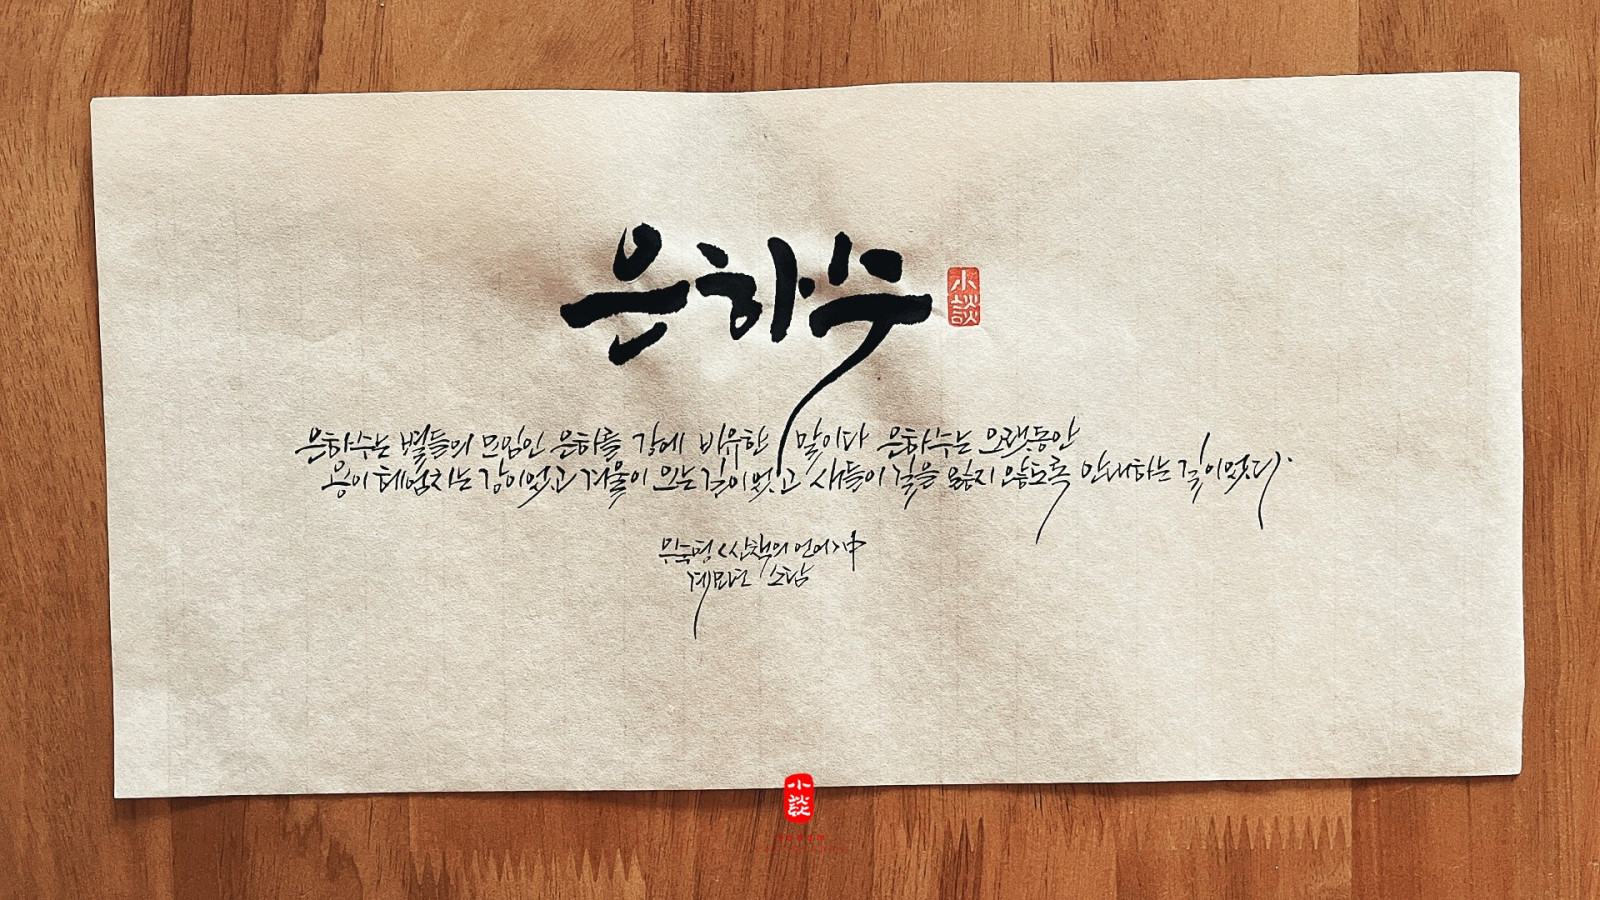 은하수
小談
은하수는 별들의 모임인 은하를 강에 비유한 말이다 은하수는 오랫동안
용이 헤엄치는 강이었고 겨울이 오는 길이었고 새들이 길을 잃지 않도록 안내하는 길이었다.
우숙영 <산책의 언어> 中
계묘년 소담
小談